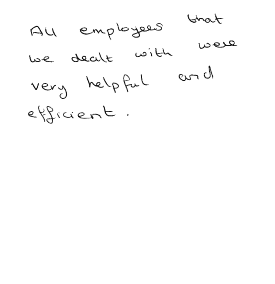 All employees that
we dealt with were
very helpful and
efficient.